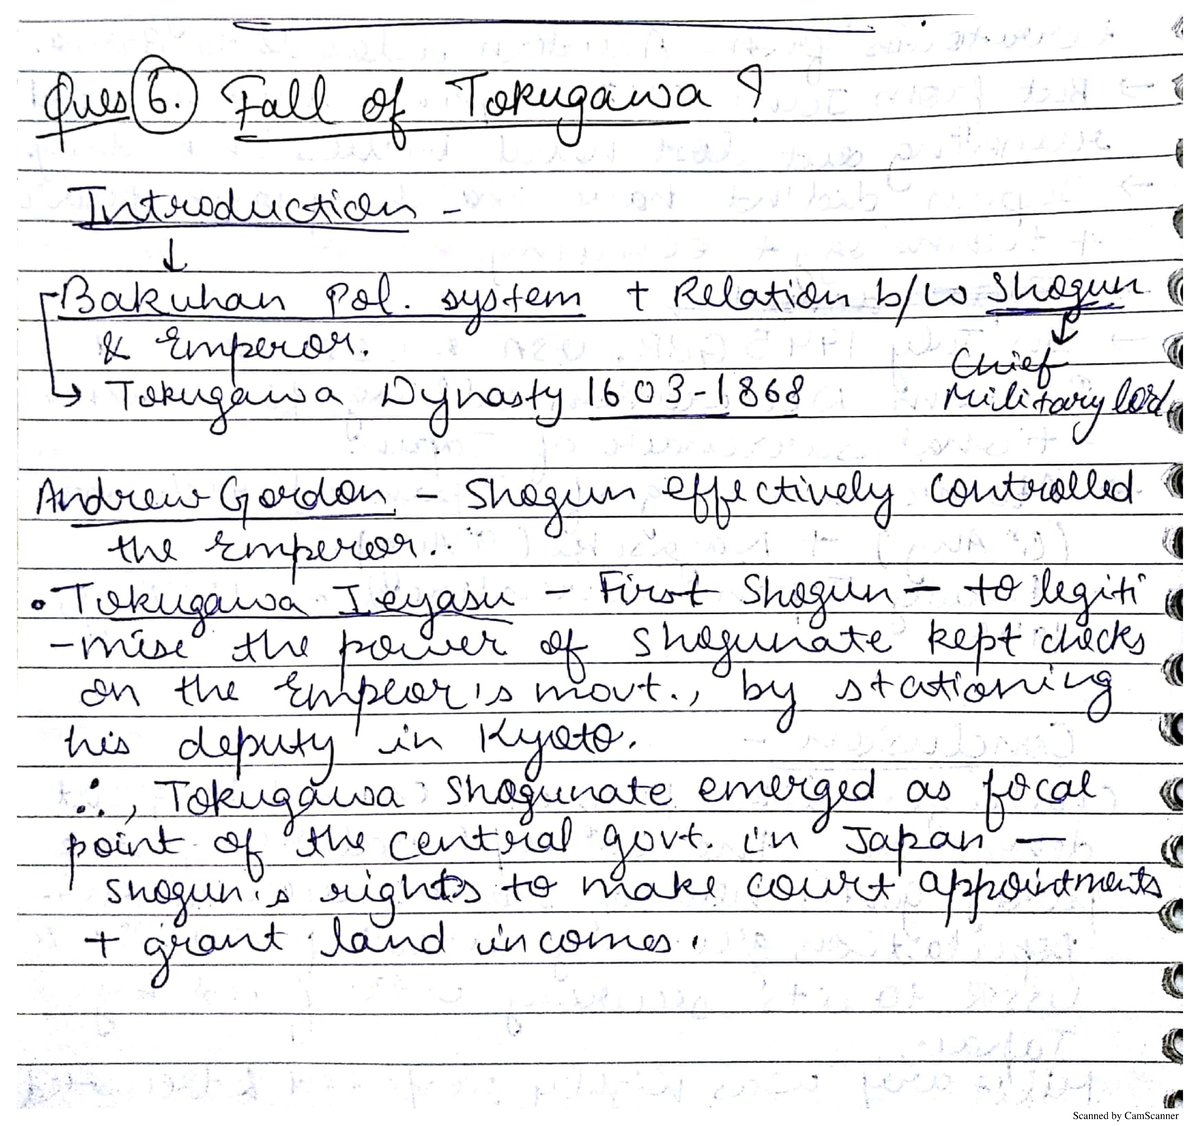 Ques 6. Fall of Tokugawa ?
Introduction -
↓
Bakuhan Pol. system + Relation b/w Shogun
& Emperor.
Chief
→ Tokugawa Dynasty 1603-1868 Military lord
Andrew Gordon - Shogun effectively controlled
the Emperor..
• Tokugawa Ieyasu - First Shogun - to legiti
-mise the power of Shogunate kept checks
on the Empeor's movt., by stationing
his deputy in Kyoto.
∴, Tokugawa Shogunate emerged as focal
point of the central govt. in Japan -
Shogun's rights to make court appointments
+ grant land incomes.
Scanned by CamScanner